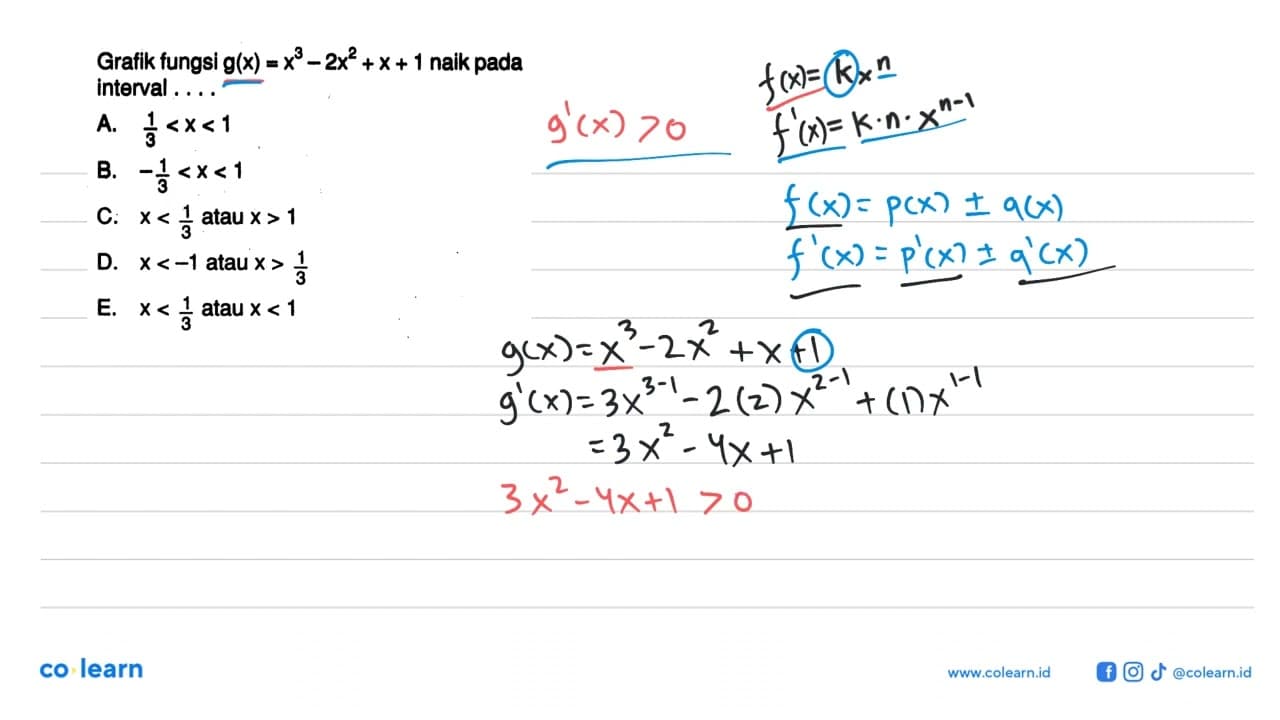 Grafik fungsi g(x) = x³ – 2x² + x + 1 naik pada
interval . . . .
A. 1/3 < x < 1
B. –1/3 < x < 1
C. x < 1/3 atau x > 1
D. x < –1 atau x > 1/3
E. x < 1/3 atau x < 1
g'(x) > 0
f(x)= k x^n
f'(x)= k·n·x^(n-1)
f(x)= p(x) ± q(x)
f'(x) = p'(x) ± q'(x)
g(x)= x³ -2x² + x +1
g'(x)= 3x^(3-1) - 2(2)x^(2-1) + (1)x^(1-1)
= 3x² - 4x +1
3x² -4x+1 > 0
co learn
www.colearn.id
@colearn.id